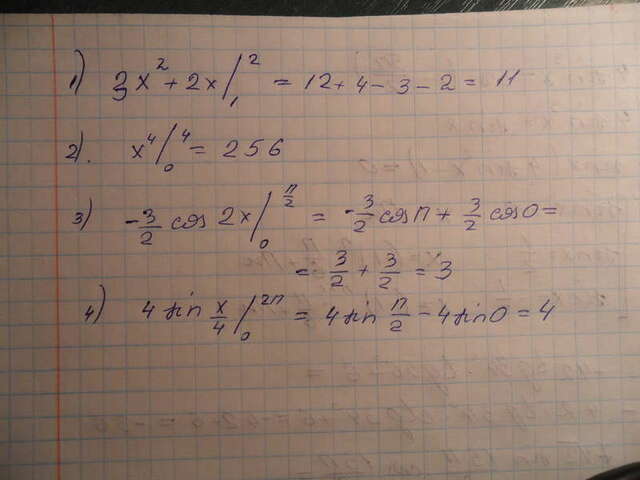 1) 3x² + 2x |₁² = 12 + 4 - 3 - 2 = 11
2). x⁴ |₀⁴ = 256
3) -3/2 cos 2x |₀^(π/2) = -3/2 cos π + 3/2 cos 0 =
= 3/2 + 3/2 = 3
4) 4 sin x/4 |₀^(2π) = 4 sin π/2 - 4 sin 0 = 4